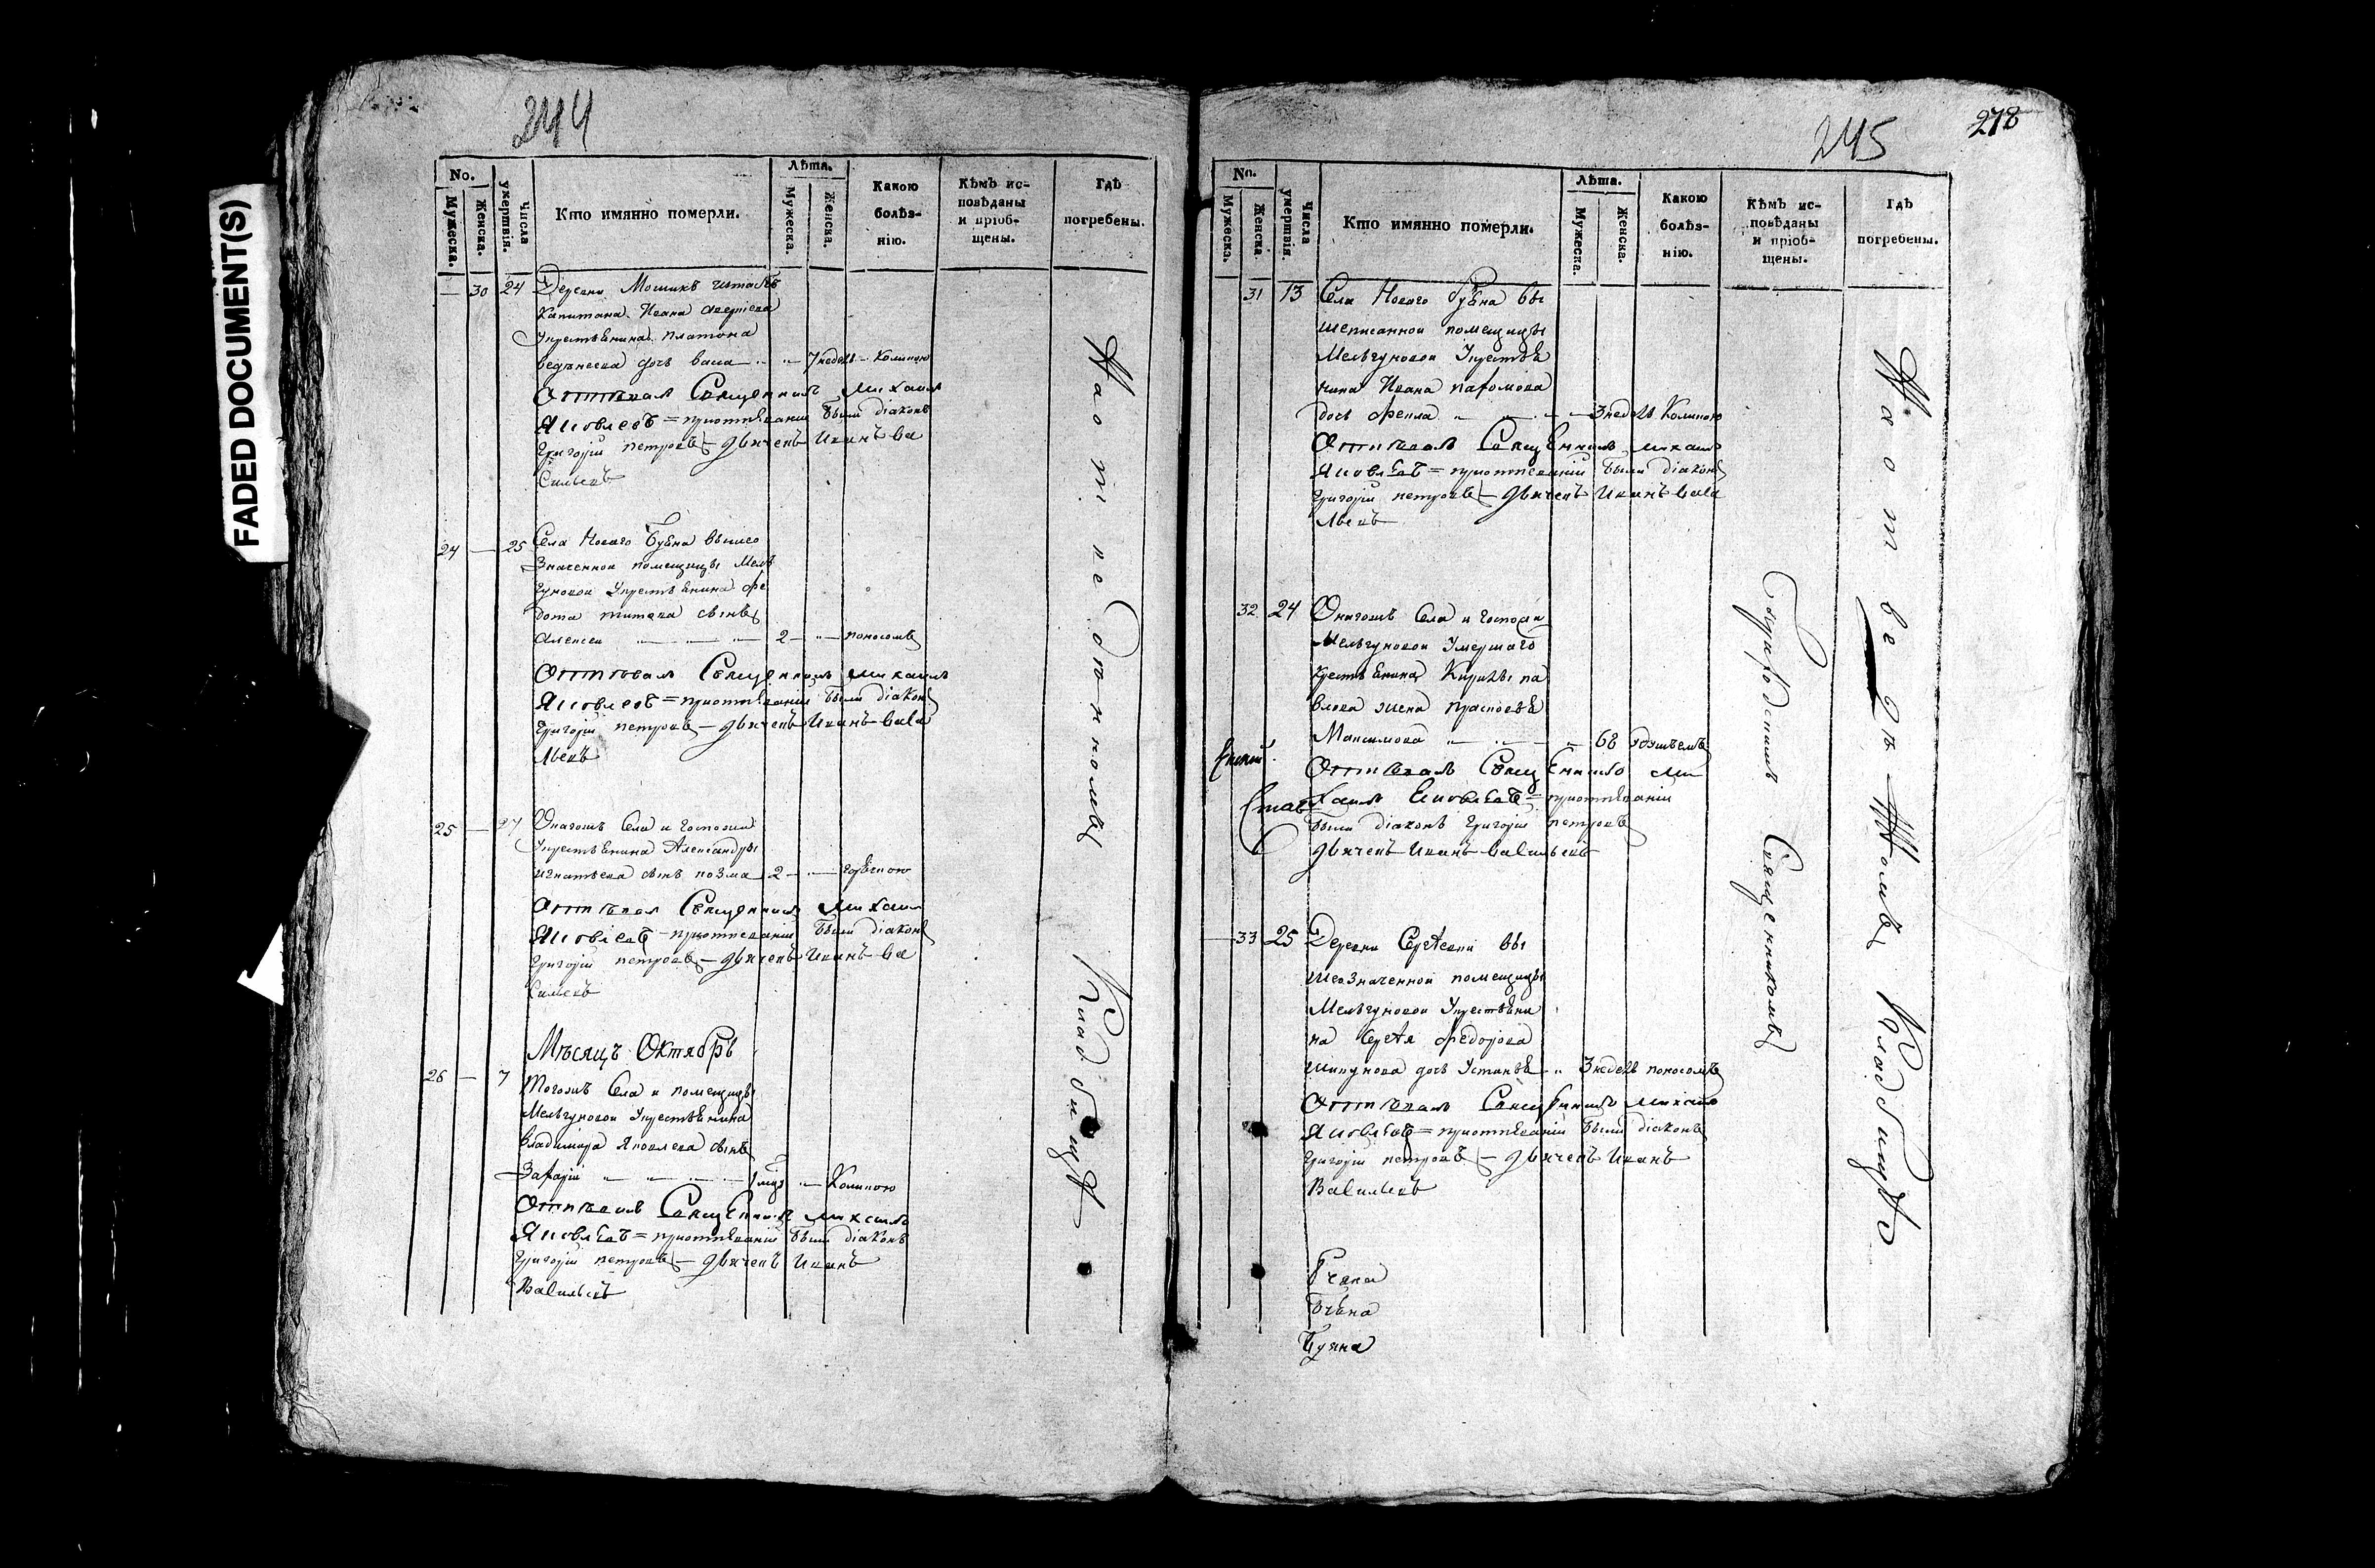 FADED DOCUMENT(S)
244
No. Мужеска. Женска.
Числа умертвія.
Кто имянно померли.
Лѣта. Мужеска. Женска.
Какою болѣз-
нію.
Кѣмъ ис-
повѣданы
и пріоб-
щены.
Гдѣ
погребены.
30 24 Деревни штабсъ
Капитана Ивана
Крестьянина Платона
дочь 7 недель Коликою
Отпѣвалъ Священникъ Михаилъ
Яковлевъ = приотпѣваніи были діаконъ
Григорій петровъ — дьячекъ Иванъ Ва
сильевъ
24 — 25 Села Новаго Буяна вышео
значенной помещицы Мель
гуновой Крестьянина Фе
дота Титова сынъ
Алексей 2 — поносомъ
Отпѣвалъ Священникъ Михаилъ
Яковлевъ = приотпѣваніи были діаконъ
Григорій петровъ — дьячекъ Иванъ Васи
льевъ
25 — 27 Онагожъ Села и Госпожи
Крестьянина Александры
игнатьева сынъ козма 2 — горячкою
Отпѣвалъ Священникъ Михаилъ
Яковлевъ — приотпеваніи были діаконъ
Григорій петровъ — дьячекъ Иванъ Ва
сильевъ
Мѣсяцъ Октябрь
26 — 7 Тогожъ Села и помещицы
Мельгуновой Крестьянина
Владимира Яковлева сынъ
Захарій 1 мцъ Коликою
Отпѣвалъ Священникъ Михаилъ
Яковлевъ = приотпѣваніи были діаконъ
Григорій петровъ — дьячекъ Иванъ
Васильевъ
Кладбищѣ
245
278
No. Мужеска. Женска.
Числа умертвія.
Кто имянно померли.
Лѣта. Мужеска. Женска.
Какою
болѣз-
нію.
Кѣмъ ис-
повѣданы
и пріоб-
щены.
Гдѣ
погребены.
31 13 Села Новаго Буяна вы
шеписанной помещицы
Мельгуновой Крестья
нина Ивана пахомова
дочь Фекла 3 недель Коликою
Отпѣвалъ Священникъ Михаилъ
Яковлевъ = приотпеваніи были діаконъ
Григорій петровъ — дьячекъ Иванъ Васи
льевъ
32 24 Онагожъ Села и Госпожи
Мельгуновой Умершаго
крестьянина Кирилы па
влова жена Прасковья
Максимова 68 удушьемъ
Отпѣвалъ Священникъ Ми
хаилъ Яковлевъ = приотпѣваніи
были діаконъ Григорій петровъ
дьячекъ Иванъ Васильевъ
Став
33 25 Деревни Сергѣевки вы
шеозначенной помещицы
Мельгуновой Крестьяни
на Сергѣя Федорова
Шипунова дочь Устинья 3 недель поносомъ
Отпѣвалъ Священникъ Михаилъ
Яковлевъ = приотпѣваніи были діаконъ
Григорій петровъ — дьячекъ Иванъ
Васильевъ
Буяна
Священникомъ
Кладбищѣ